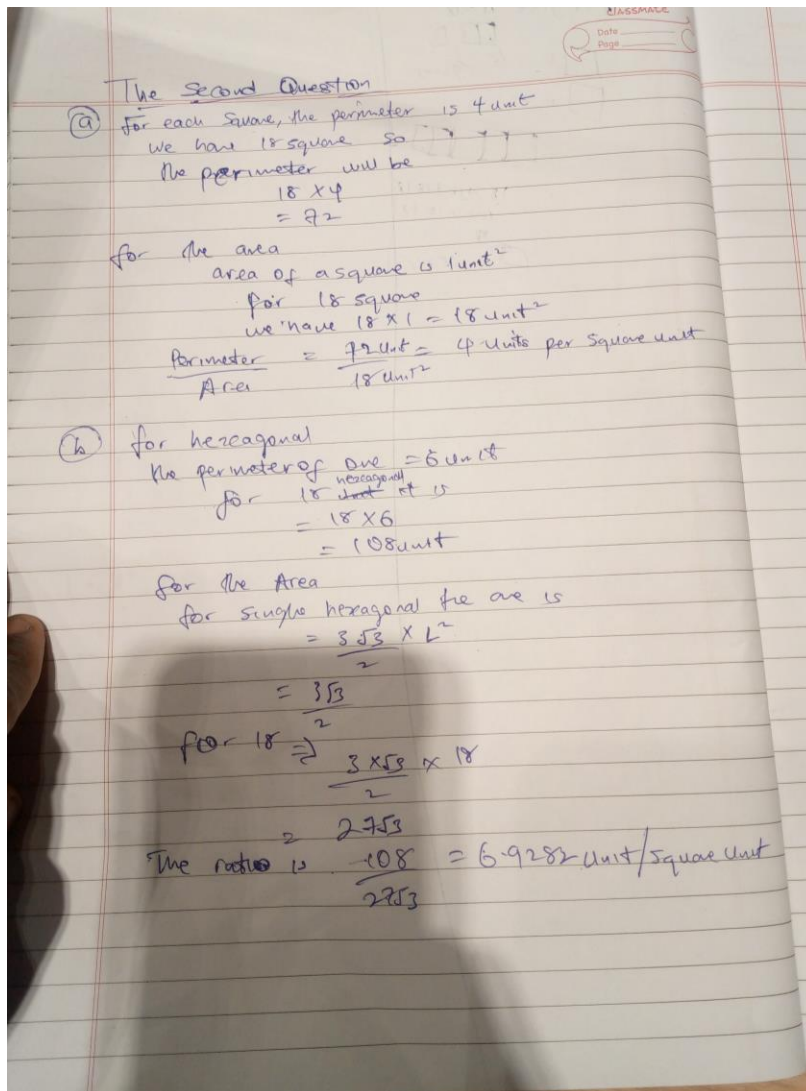 CLASSMATE
Date
Page
The Second Question
(a) for each Square, the perimeter is 4 unit
we have 18 square so
the perimeter will be
18 × 4
= 72
for the area
area of a square is 1 unit²
for 18 square
we have 18 × 1 = 18 unit²
Perimeter/Area = 72 unit/18 unit² = 4 units per Square unit
(b) for hexagonal
the perimeter of one = 6 unit
for 18 hexagonal it is
= 18 × 6
= 108 unit
for the Area
for single hexagonal the are is
= 3√3/2 × L²
= 3√3/2
for 18 ⇒ 3×√3/2 × 18
= 27√3
The ratio is 108/27√3 = 6.9282 unit/square unit